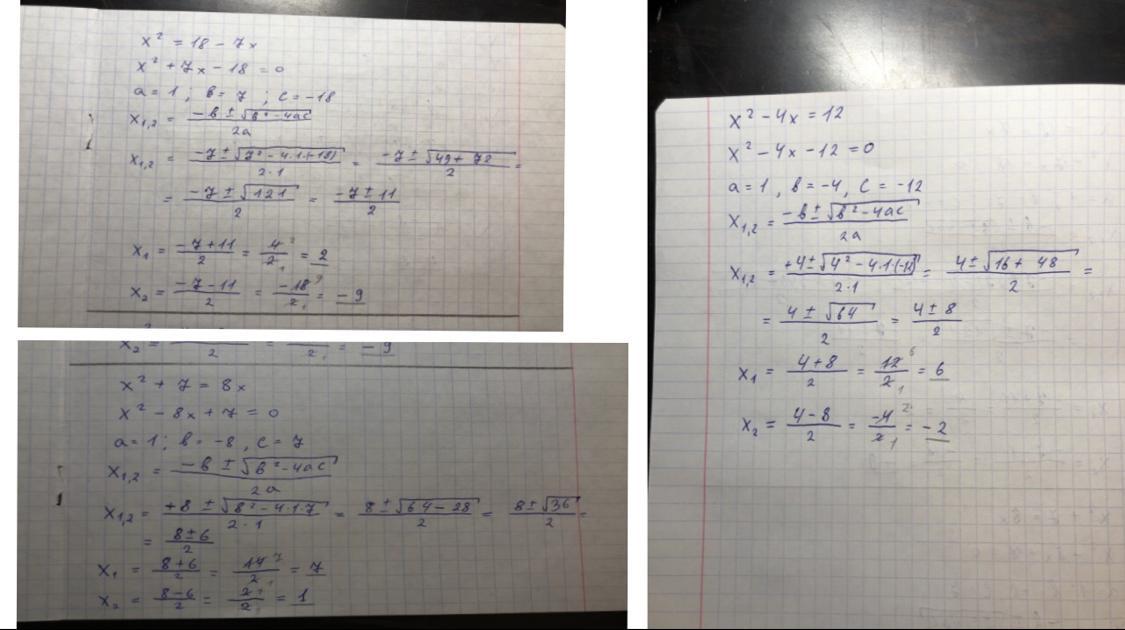 x² = 18 - 7x
x² + 7x - 18 = 0
a = 1 ; b = 7 ; c = -18
x₁,₂ = (-b ± √(b² - 4ac)) / 2a
x₁,₂ = (-7 ± √(7² - 4·1·(-18))) / 2·1 = (-7 ± √(49 + 72)) / 2 =
= (-7 ± √121) / 2 = (-7 ± 11) / 2
x₁ = (-7 + 11) / 2 = 4 / 2 = 2
x₂ = (-7 - 11) / 2 = -18 / 2 = -9
x₂ = / 2 = / 2 = -9
x² + 7 = 8x
x² - 8x + 7 = 0
a = 1 ; b = -8 , c = 7
x₁,₂ = (-b ± √(b² - 4ac)) / 2a
x₁,₂ = (+8 ± √(8² - 4·1·7)) / 2·1 = (8 ± √(64 - 28)) / 2 = (8 ± √36) / 2 =
= (8 ± 6) / 2
x₁ = (8 + 6) / 2 = 14 / 2 = 7
x₂ = (8 - 6) / 2 = 2 / 2 = 1
x² - 4x = 12
x² - 4x - 12 = 0
a = 1 , b = -4 , c = -12
x₁,₂ = (-b ± √(b² - 4ac)) / 2a
x₁,₂ = (+4 ± √(4² - 4·1·(-12))) / 2·1 = (4 ± √(16 + 48)) / 2 =
= (4 ± √64) / 2 = (4 ± 8) / 2
x₁ = (4 + 8) / 2 = 12 / 2 = 6
x₂ = (4 - 8) / 2 = -4 / 2 = -2